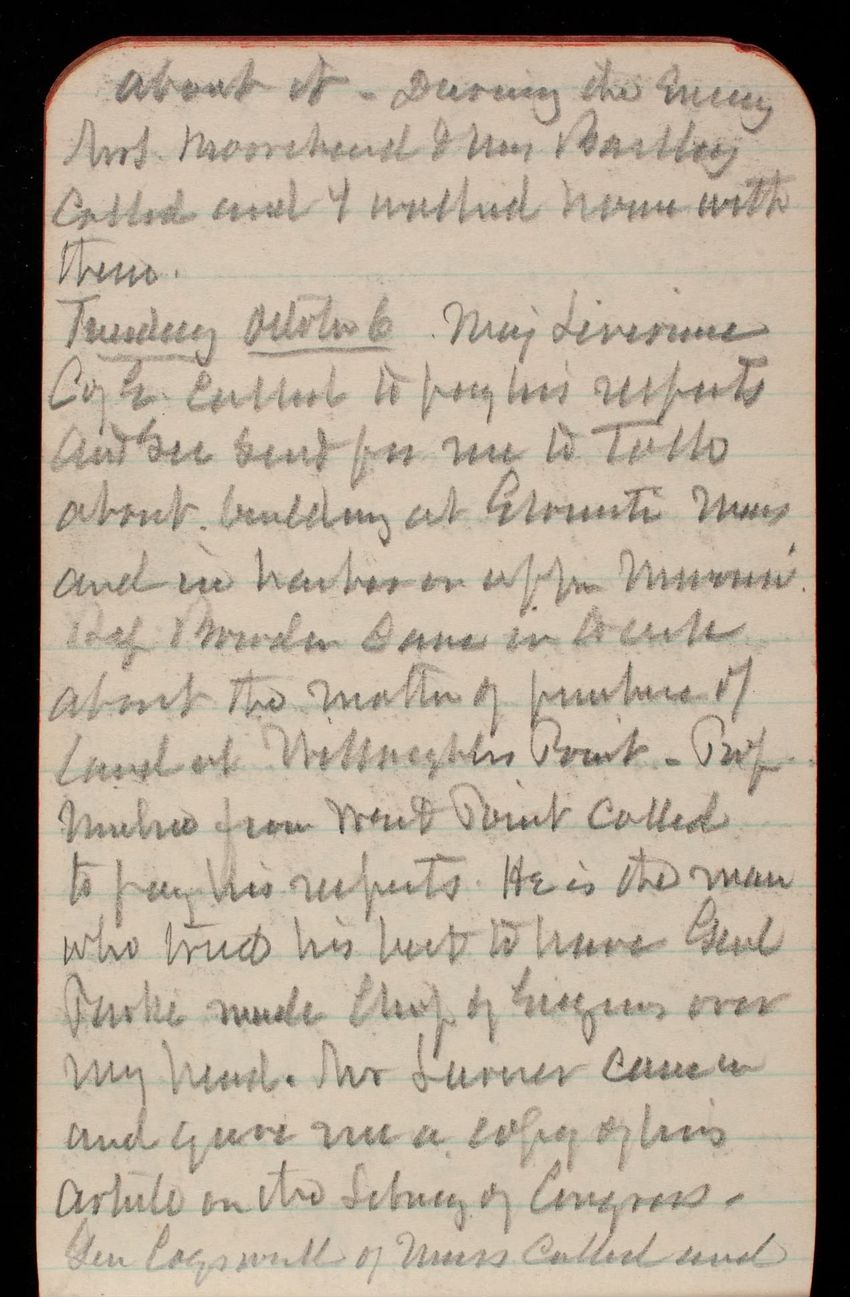 about it - During the Eveng
Mrs. Moorehead & Mrs Bartley
Called and I walked home with
them.
Tuesday October 6. Maj Livermore
C of E. Called to pay his respects
And Sec send for me to talk
about building at Mass
and in harbor on upper Missouri.
Ref Bowden Came in to talk
about the matter of purchase of
land at Willoughbys Point - Prof.
Michie from West Point Called
to pay his respects. He is the man
who tried his best to have Genl
Parke made Chief of Engineers over
my head. Mr came in
and gave me a copy of his
article on the Library of Congress -
Gen Cogswell of Mass Called and